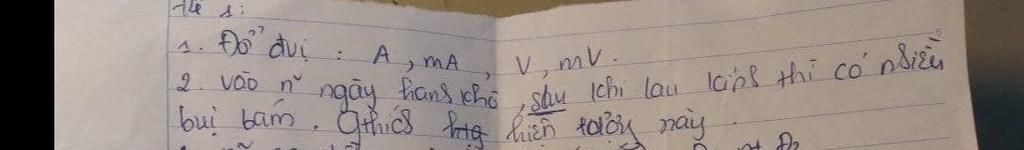 Đề 1:
1. Đổi đvị : A, mA, V, mV.
2. vào n~ ngày hanh khô, sau khi lau kính thì có nhiều
bụi bám. Gthích hiện tượng này.